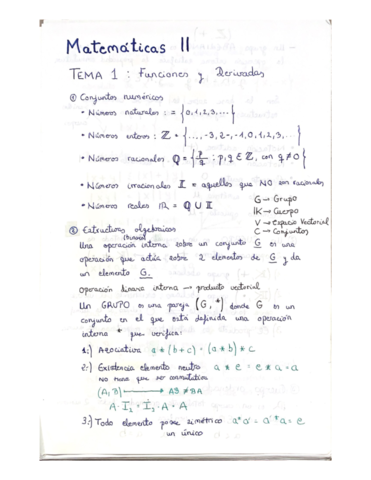 Matemáticas II
TEMA 1 : Funciones y Derivadas
① Conjuntos numéricos
• Números naturales : = {0, 1, 2, 3, ...}
• Números enteros : ℤ = {..., -3, 2-, -1, 0, 1, 2, 3, ...}
• Números racionales ℚ = {p/q ; p, q ∈ ℤ, con q ≠ 0}
• Números irracionales 𝕀 = aquellos que NO son racionales
• Números reales ℝ = ℚ ∪ 𝕀
G → Grupo
K → Cuerpo
V → Espacio Vectorial
C → Conjuntos
② Estructuras algebraicas
(binaria)
Una operación interna sobre un conjunto G es una
operación que actúa sobre 2 elementos de G y da
un elemento G.
Operación binaria interna → producto vectorial
Un GRUPO es una pareja (G, *) donde G es un
conjunto en el que está definida una operación
interna * que verifica:
1:) Asociativa a * (b * c) = (a * b) * c
2:) Existencia elemento neutro a * e = e * a = a
NO tiene que ser conmutativa
(A, B) → AB ≠ BA
A · I₂ = I₂ · A = A
3:) Todo elemento posee simétrico a * a' = a' * a = e
un único